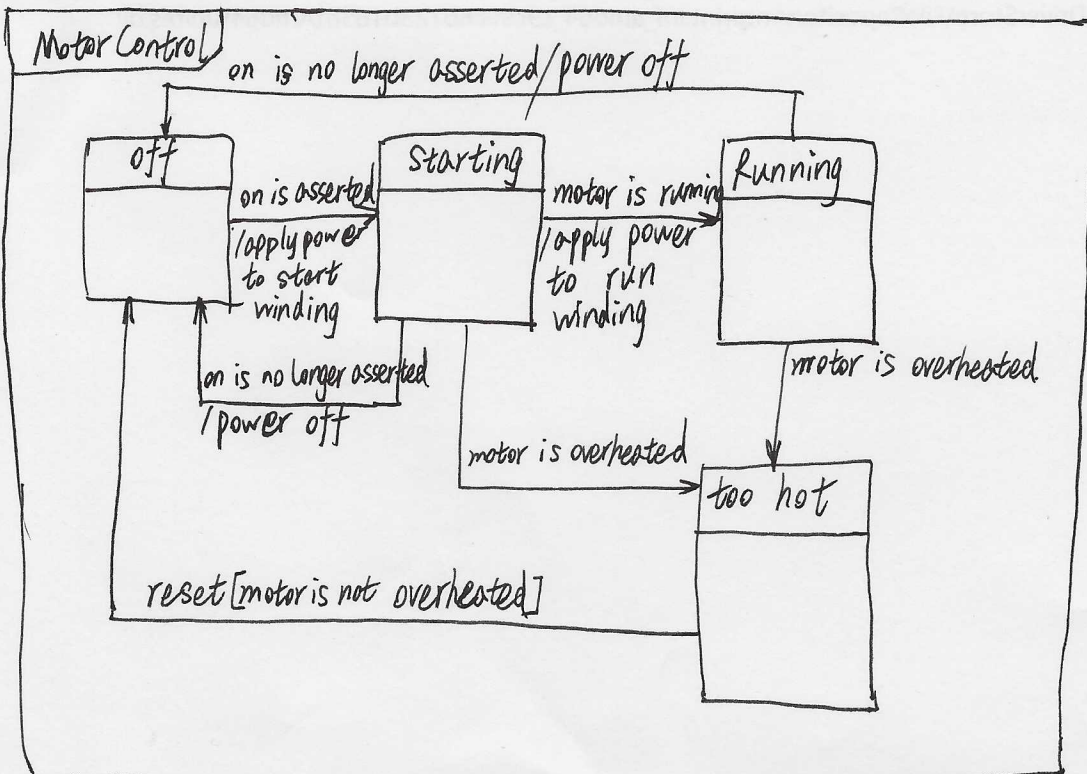 Motor Control
on is no longer asserted/power off
off
Starting
Running
on is asserted
/apply power
to start
winding
motor is running
/apply power
to run
winding
on is no longer asserted
/power off
motor is overheated
motor is overheated
too hot
reset[motor is not overheated]